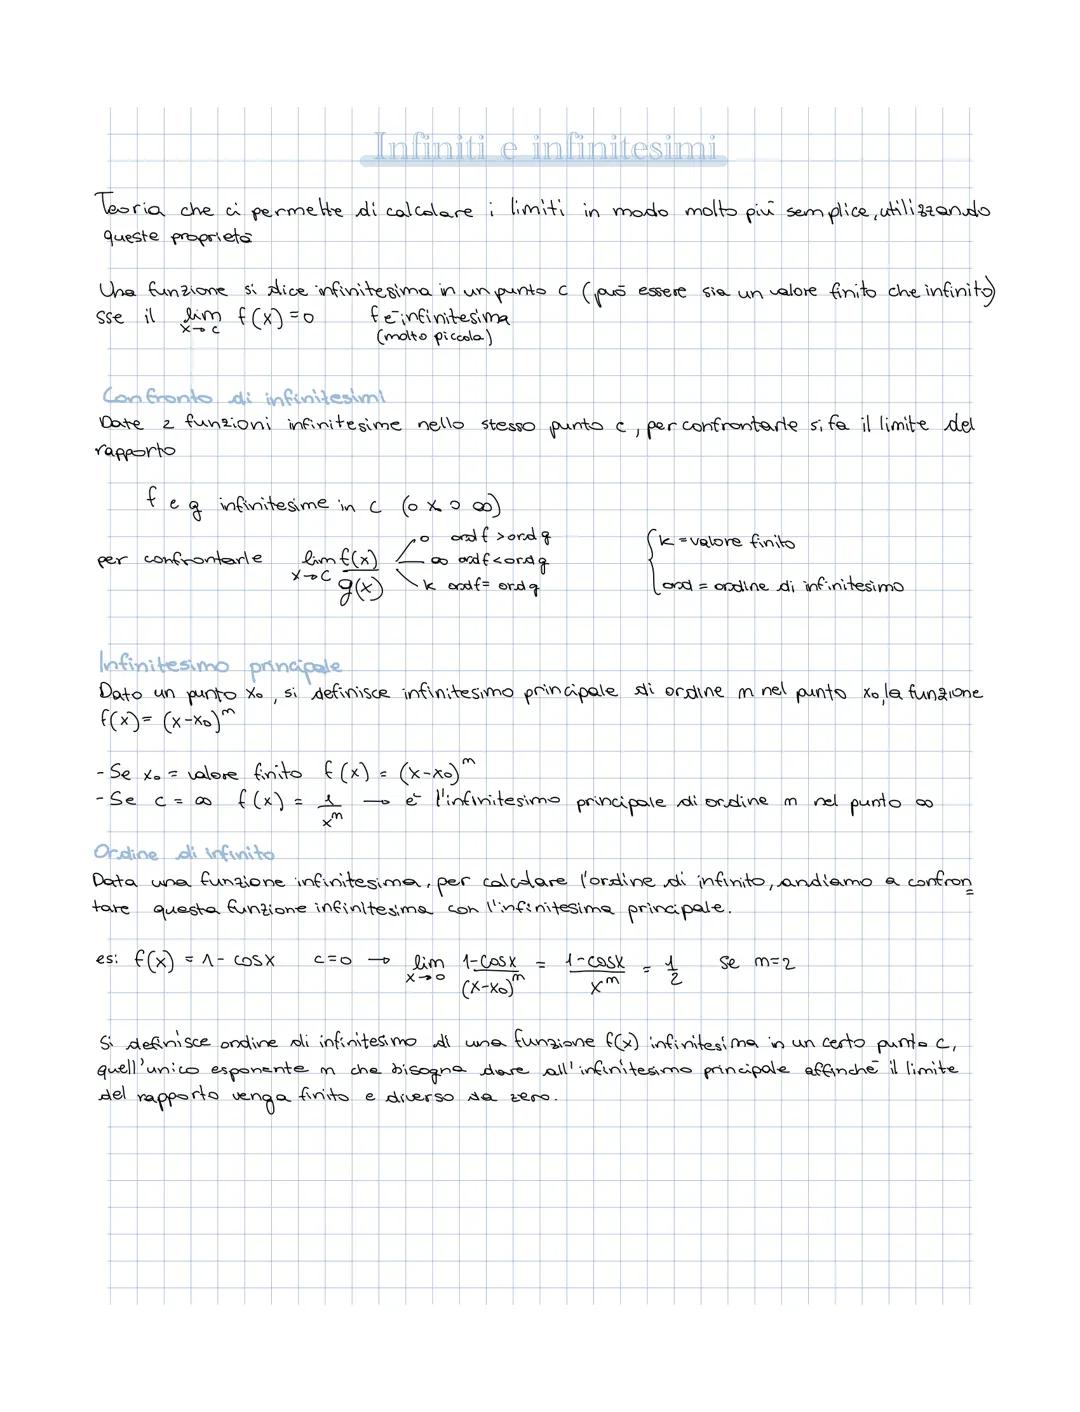 Infiniti e infinitesimi
Teoria che ci permette di calcolare i limiti in modo molto più semplice, utilizzando
queste proprietà
Una funzione si dice infinitesima in un punto c (può essere sia un valore finito che infinito)
sse il lim f(x)=0 f è infinitesima
x→c (molto piccola)
Confronto di infinitesimi
Date 2 funzioni infinitesime nello stesso punto c, per confrontarle si fa il limite del
rapporto
f e g infinitesime in c (o x o ∞)
0 ord f > ord g
per confrontarle lim f(x)/g(x) ∞ ord f < ord g
x→c k ord f = ord g
k = valore finito
ord = ordine di infinitesimo
Infinitesimo principale
Dato un punto x₀, si definisce infinitesimo principale di ordine m nel punto x₀, la funzione
f(x)= (x-x₀)ᵐ
- Se x₀ = valore finito f(x) = (x-x₀)ᵐ
- Se c = ∞ f(x) = 1/xᵐ → è l'infinitesimo principale di ordine m nel punto ∞
Ordine di infinito
Data una funzione infinitesima, per calcolare l'ordine di infinito, andiamo a confron
tare questa funzione infinitesima con l'infinitesima principale.
es: f(x) = 1 - cosx c=0 → lim x→0 1-cosx/(x-x₀)ᵐ = 1-cosx/xᵐ = 1/2 se m=2
Si definisce ordine di infinitesimo di una funzione f(x) infinitesima in un certo punto c,
quell'unico esponente m che bisogna dare all'infinitesimo principale affinché il limite
del rapporto venga finito e diverso da zero.